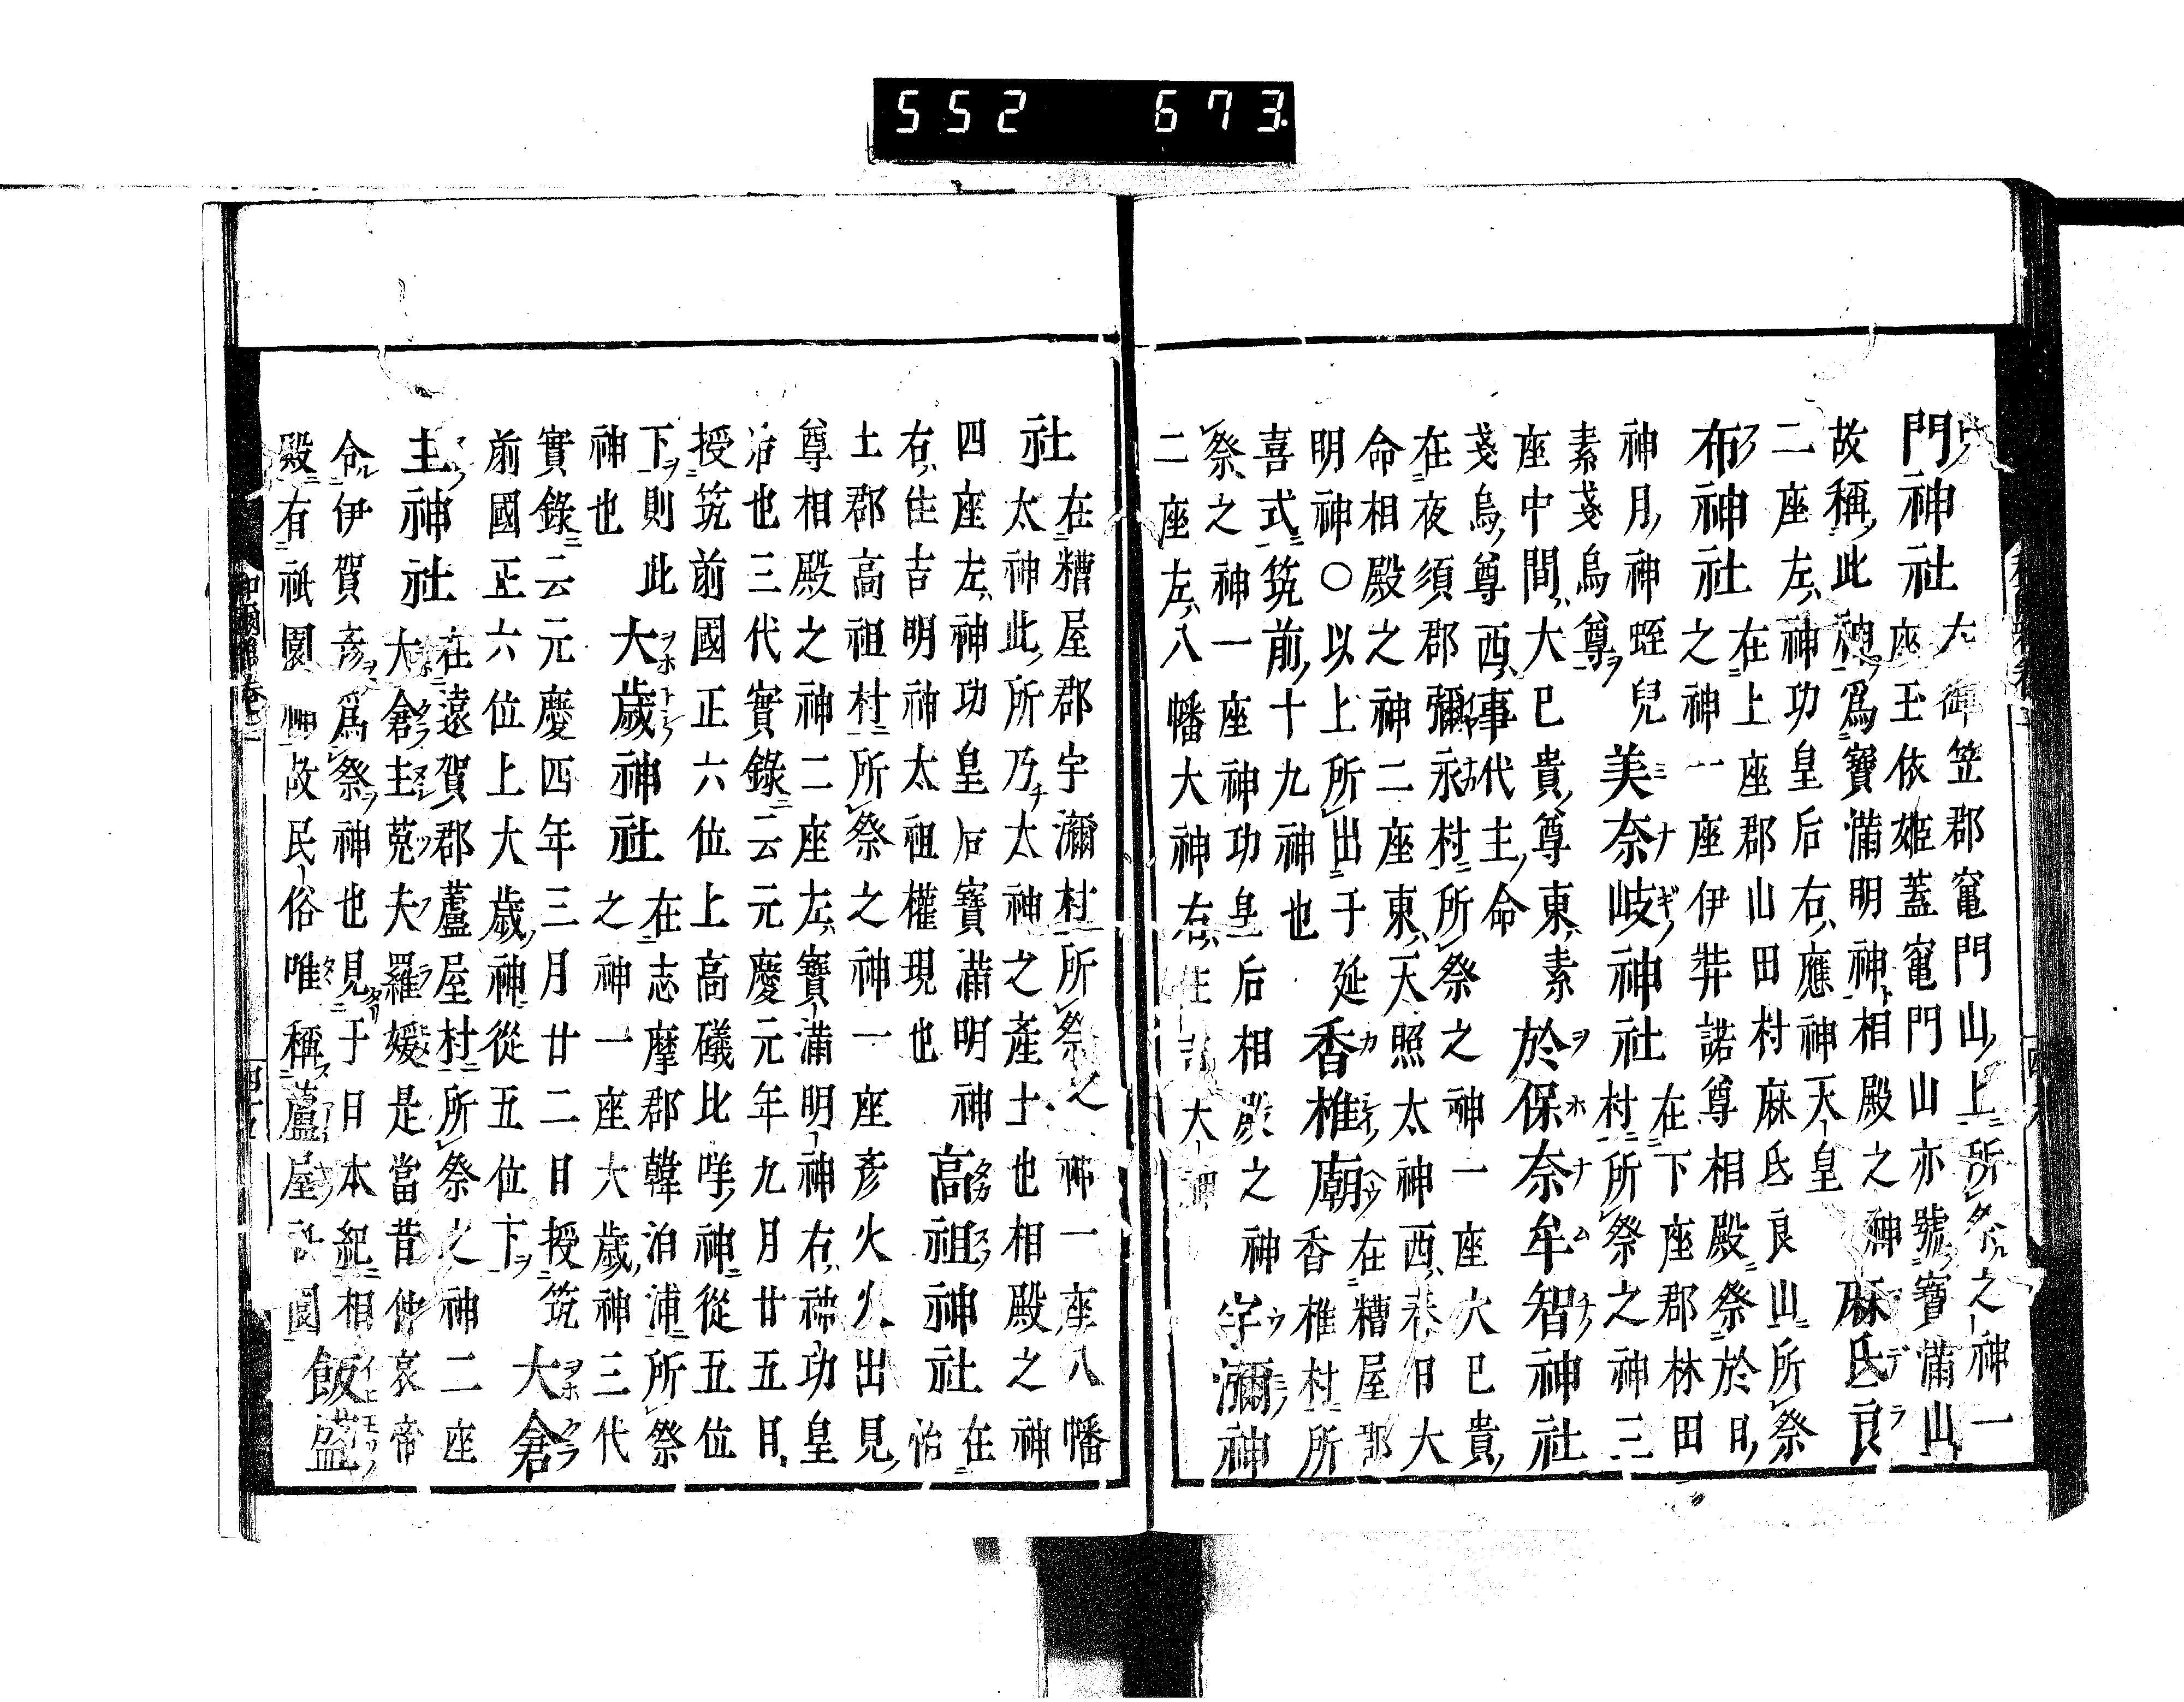 552 673
門神社
在御笠郡竈門山上所祭之神一
座玉依姬蓋竈門山亦號寶滿山
故稱此神爲寶滿明神相殿之神
二座左神功皇后右應神天皇
麻氐良
布神社
在上座郡山田村麻氐良山所祭
之神一座伊弉諾尊相殿祭於日
神月神蛭兒
素戔烏尊
美奈岐神社
在下座郡林田
村所祭之神三
座中間大已貴尊東素
戔烏尊西事代主命
於保奈牟智神社
在夜須郡彌永村所祭之神一座大已貴
命相殿之神二座東天照太神西春日大
明神○以上所出于延
喜式筑前十九神也
香椎廟
在糟屋郡
香椎村所
祭之神一座神功皇后相殿之神
二座左八幡大神右住吉大神
宇瀰神
社
在糟屋郡宇瀰村所祭之神一座八幡
太神此所乃太神之產土也相殿之神
四座左神功皇后寶滿明神
右住吉明神太祖權現也
高祖神社
在
怡
土郡高祖村所祭之神一座彥火火出見
尊相殿之神二座左寶滿明神右神功皇
后也三代實錄云元慶元年九月廿五日
授筑前國正六位上高礒比咩神從五位
下則此
神也
大歲神社
在志摩郡韓泊浦所祭
之神一座大歲神三代
實錄云元慶四年三月廿二日授筑
前國正六位上大歲神從五位下
大倉
主神社
在遠賀郡蘆屋村所祭之神二座
大倉主菟夫羅媛是當昔仲哀帝
令伊賀彥爲祭神也見于日本紀相
殿有祇園神故民俗唯稱蘆屋祇園
飯盛